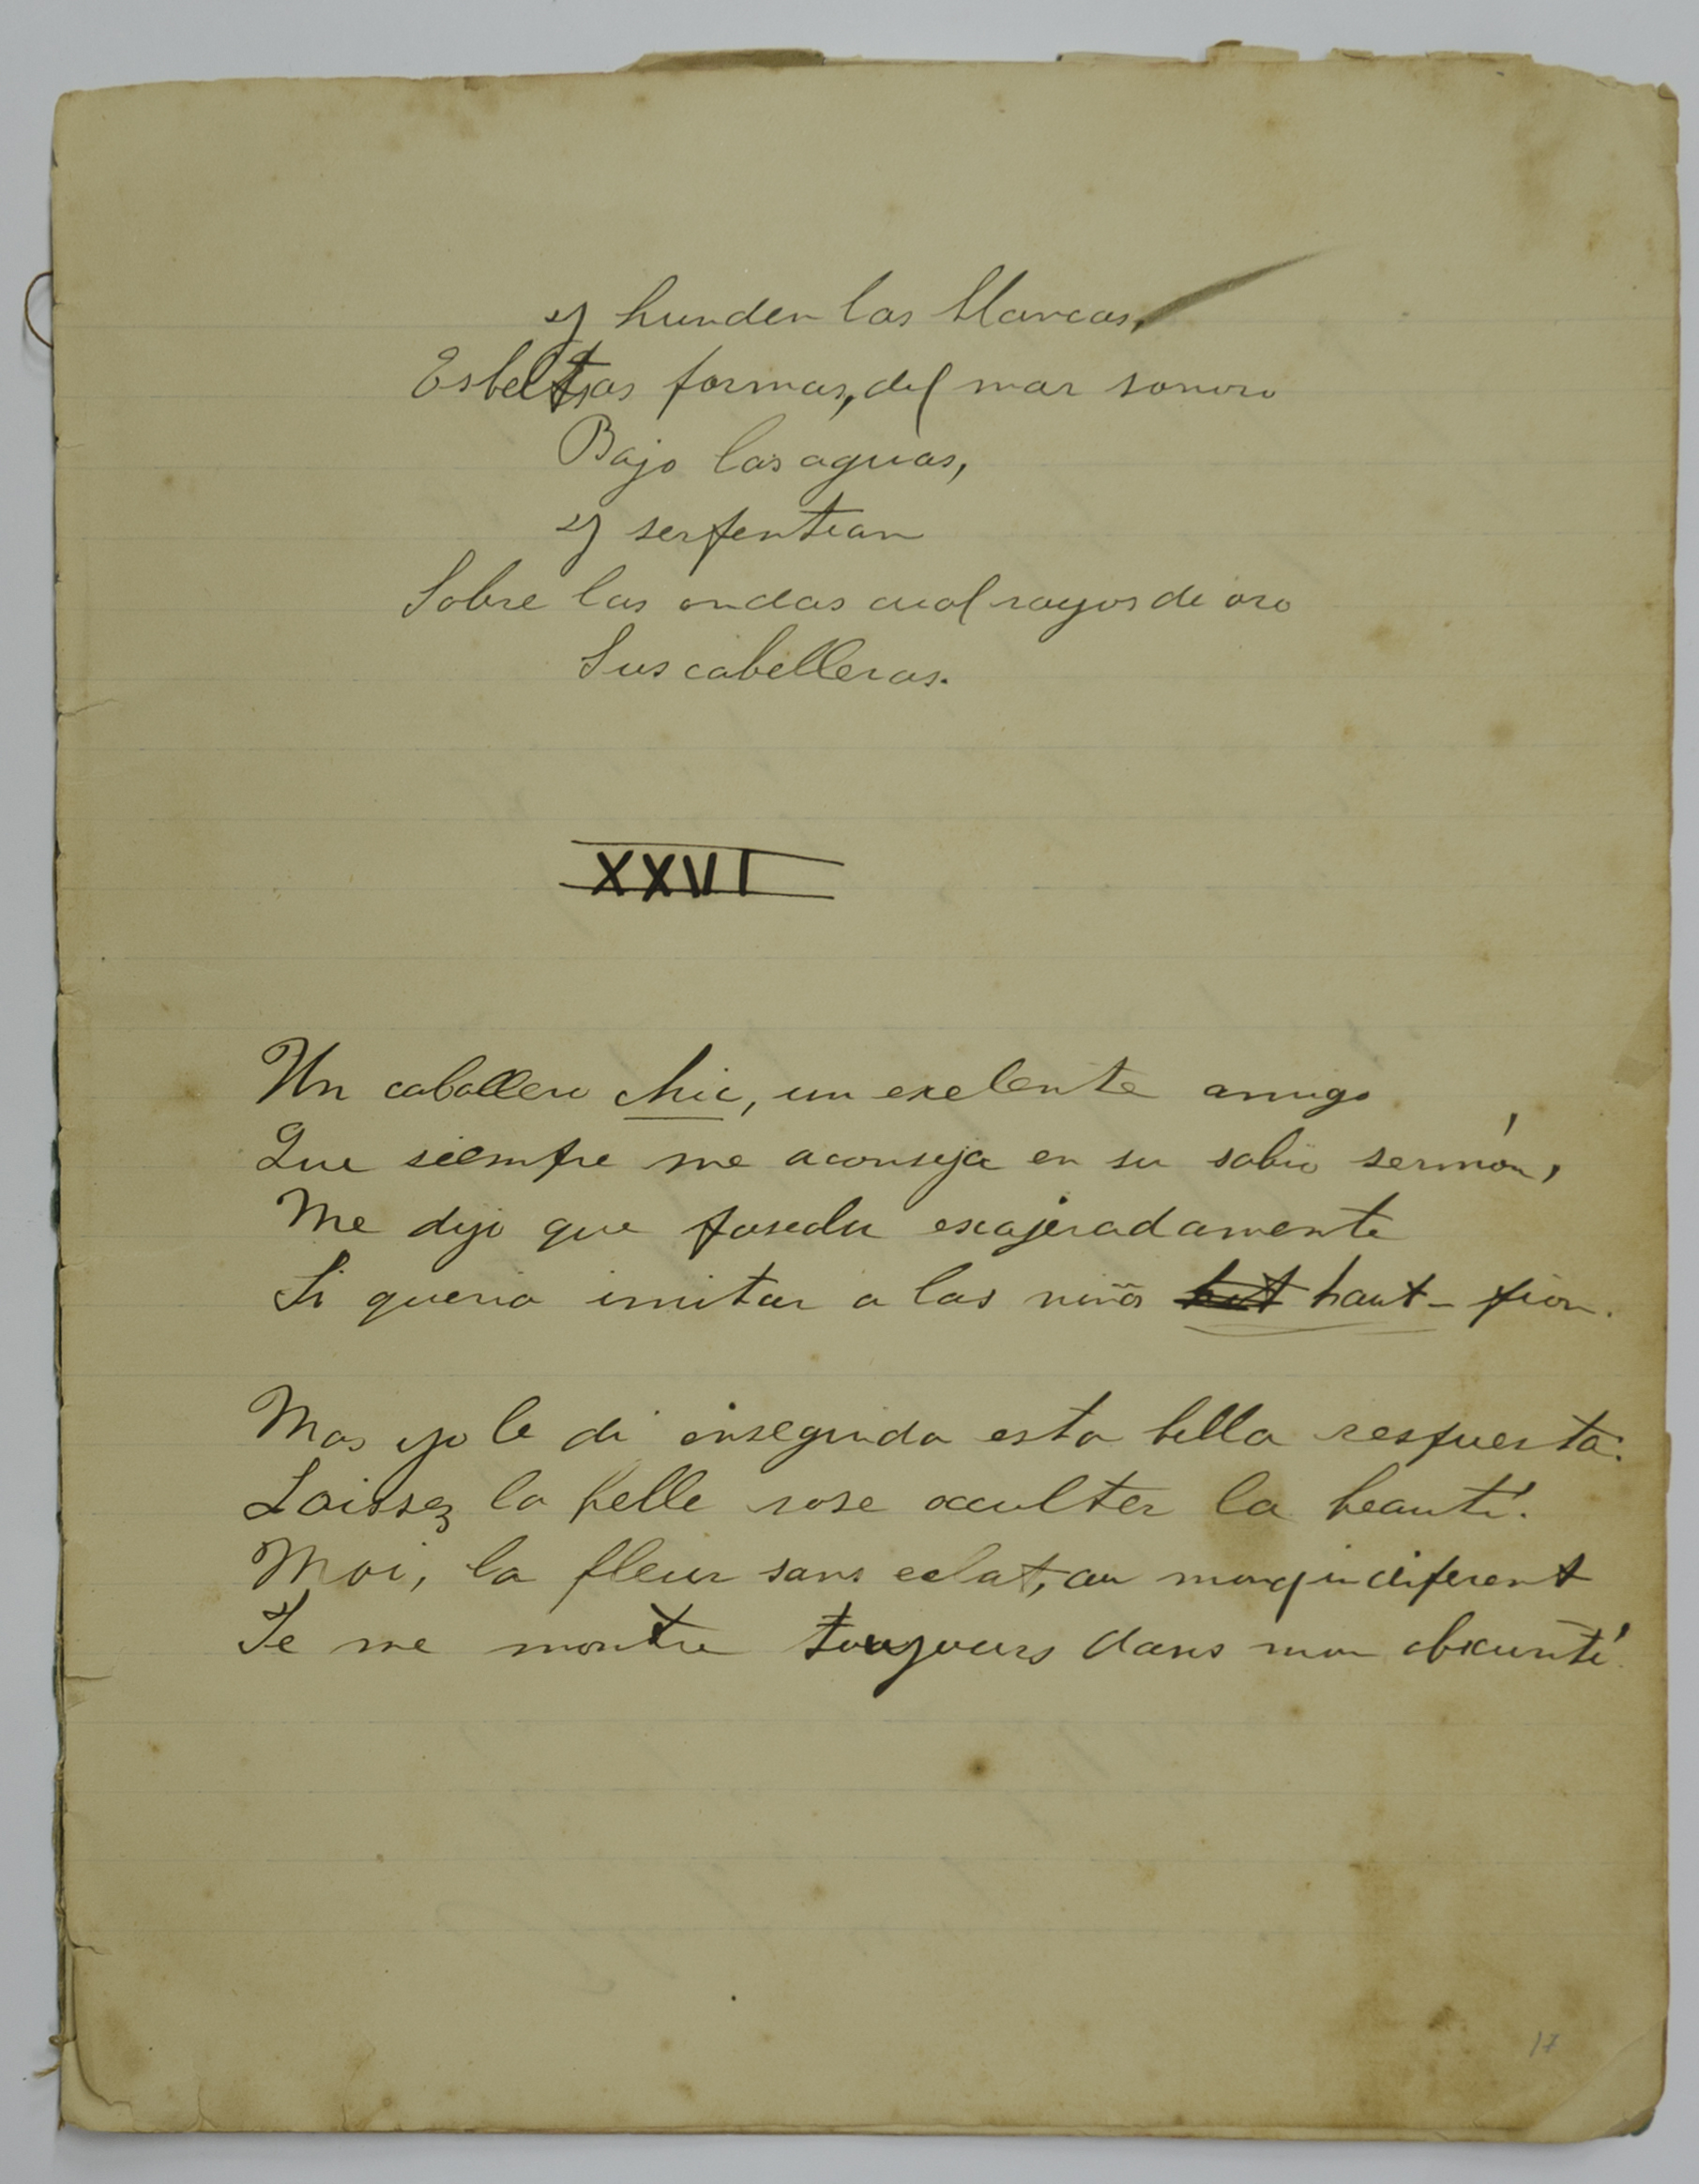 y hunden las blancas,
Esbeltas formas, del mar sonoro
Bajo las aguas,
y serpentean
Sobre las ondas cual rayos de oro
Sus cabelleras.
XXVI
Un caballero chic, un exelente amigo
Que siempre me aconseja en su sabio sermón,
Me dijo que exajeradamente
Si queria imitar a las niñas haut-
Mas yo le di enseguida esta bella respuesta:
Laissez la belle rose occulter la beauté.
Moi, la fleur sans eclat, au indiferent
Je me montre toujours dans mon obscurité
17